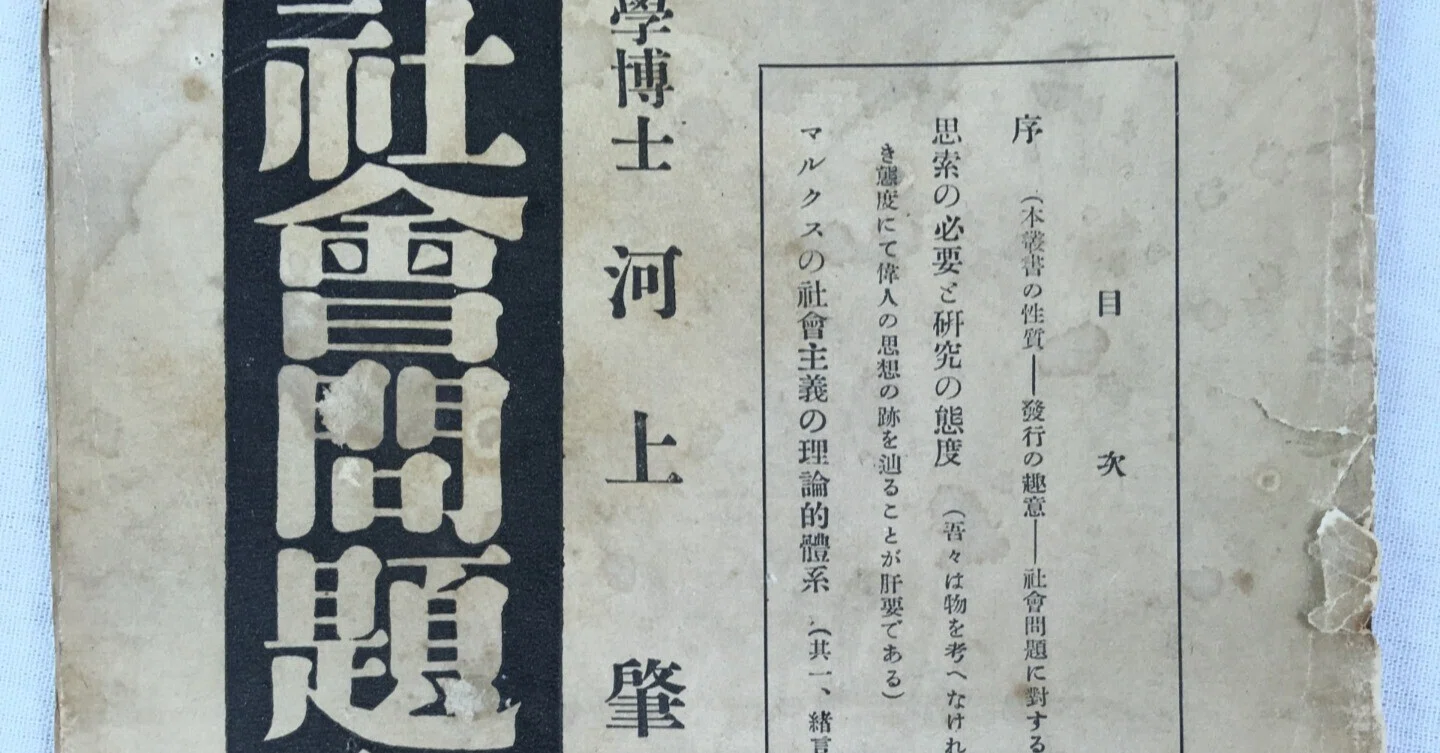 目次
序 (本叢書の性質――發行の趣意――社會問題に對する
思索の必要と研究の態度 (吾々は物を考へなけれ
き態度にて偉人の思想の跡を辿ることが肝要である)
マルクスの社會主義の理論的體系 (其一、緒言
學博士 河上肇
社會問題